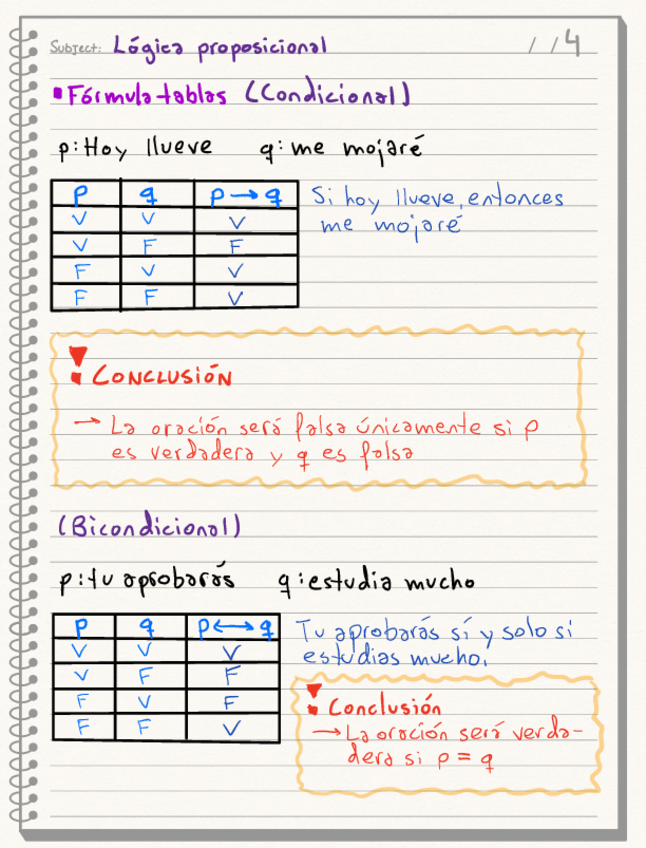 Subject: Lógica proposicional / / 4
Fórmula tablas (Condicional)
p: Hoy llueve q: me mojaré
p q p → q
V V V
V F F
F V V
F F V
Si hoy llueve, entonces
me mojaré
! CONCLUSIÓN
→ La oración será falsa únicamente si p
es verdadera y q es falsa
(Bicondicional)
p: tu aprobarás q: estudia mucho
p q p ↔ q
V V V
V F F
F V F
F F V
Tu aprobarás sí y solo si
estudias mucho.
! Conclusión
→ La oración será verda-
dera si p = q